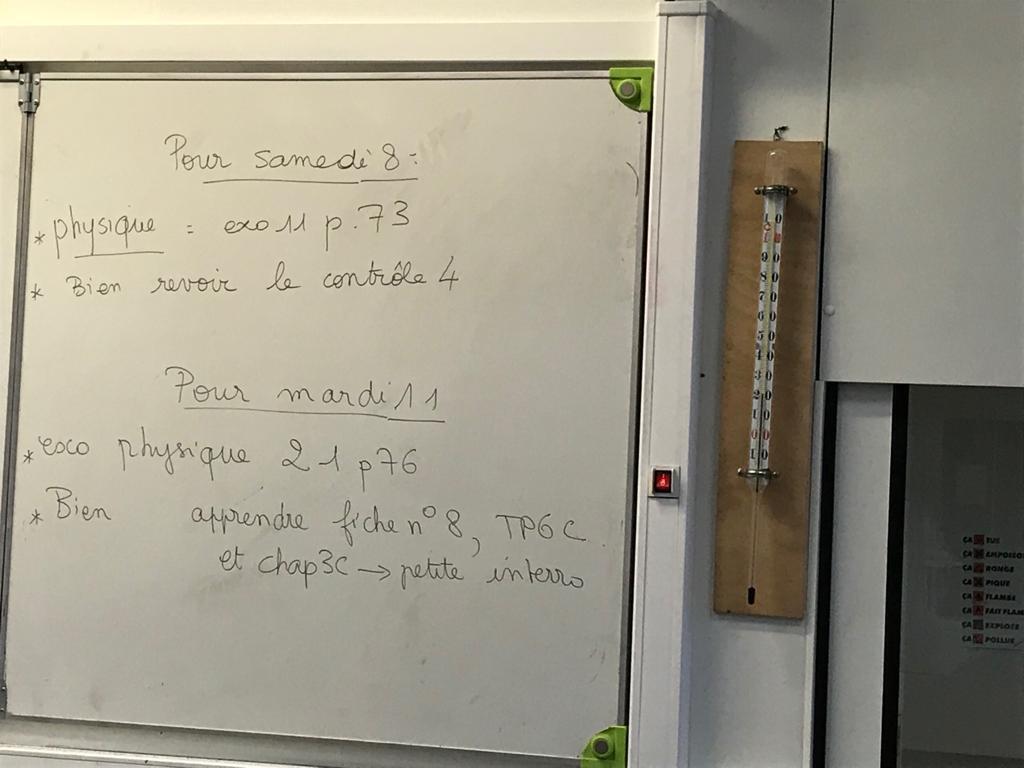 Pour samedi 8 :
* physique = exo 11 p. 73
* Bien revoir le contrôle 4
Pour mardi 11
* exo physique 21 p76
* Bien apprendre fiche n° 8, TP6C
et chap3C → petite interro
ÇA TUE
ÇA RONGE
ÇA PIQUE
ÇA FLAMBE
ÇA FAIT FLAM
ÇA EXPLOSE
ÇA POLLUE